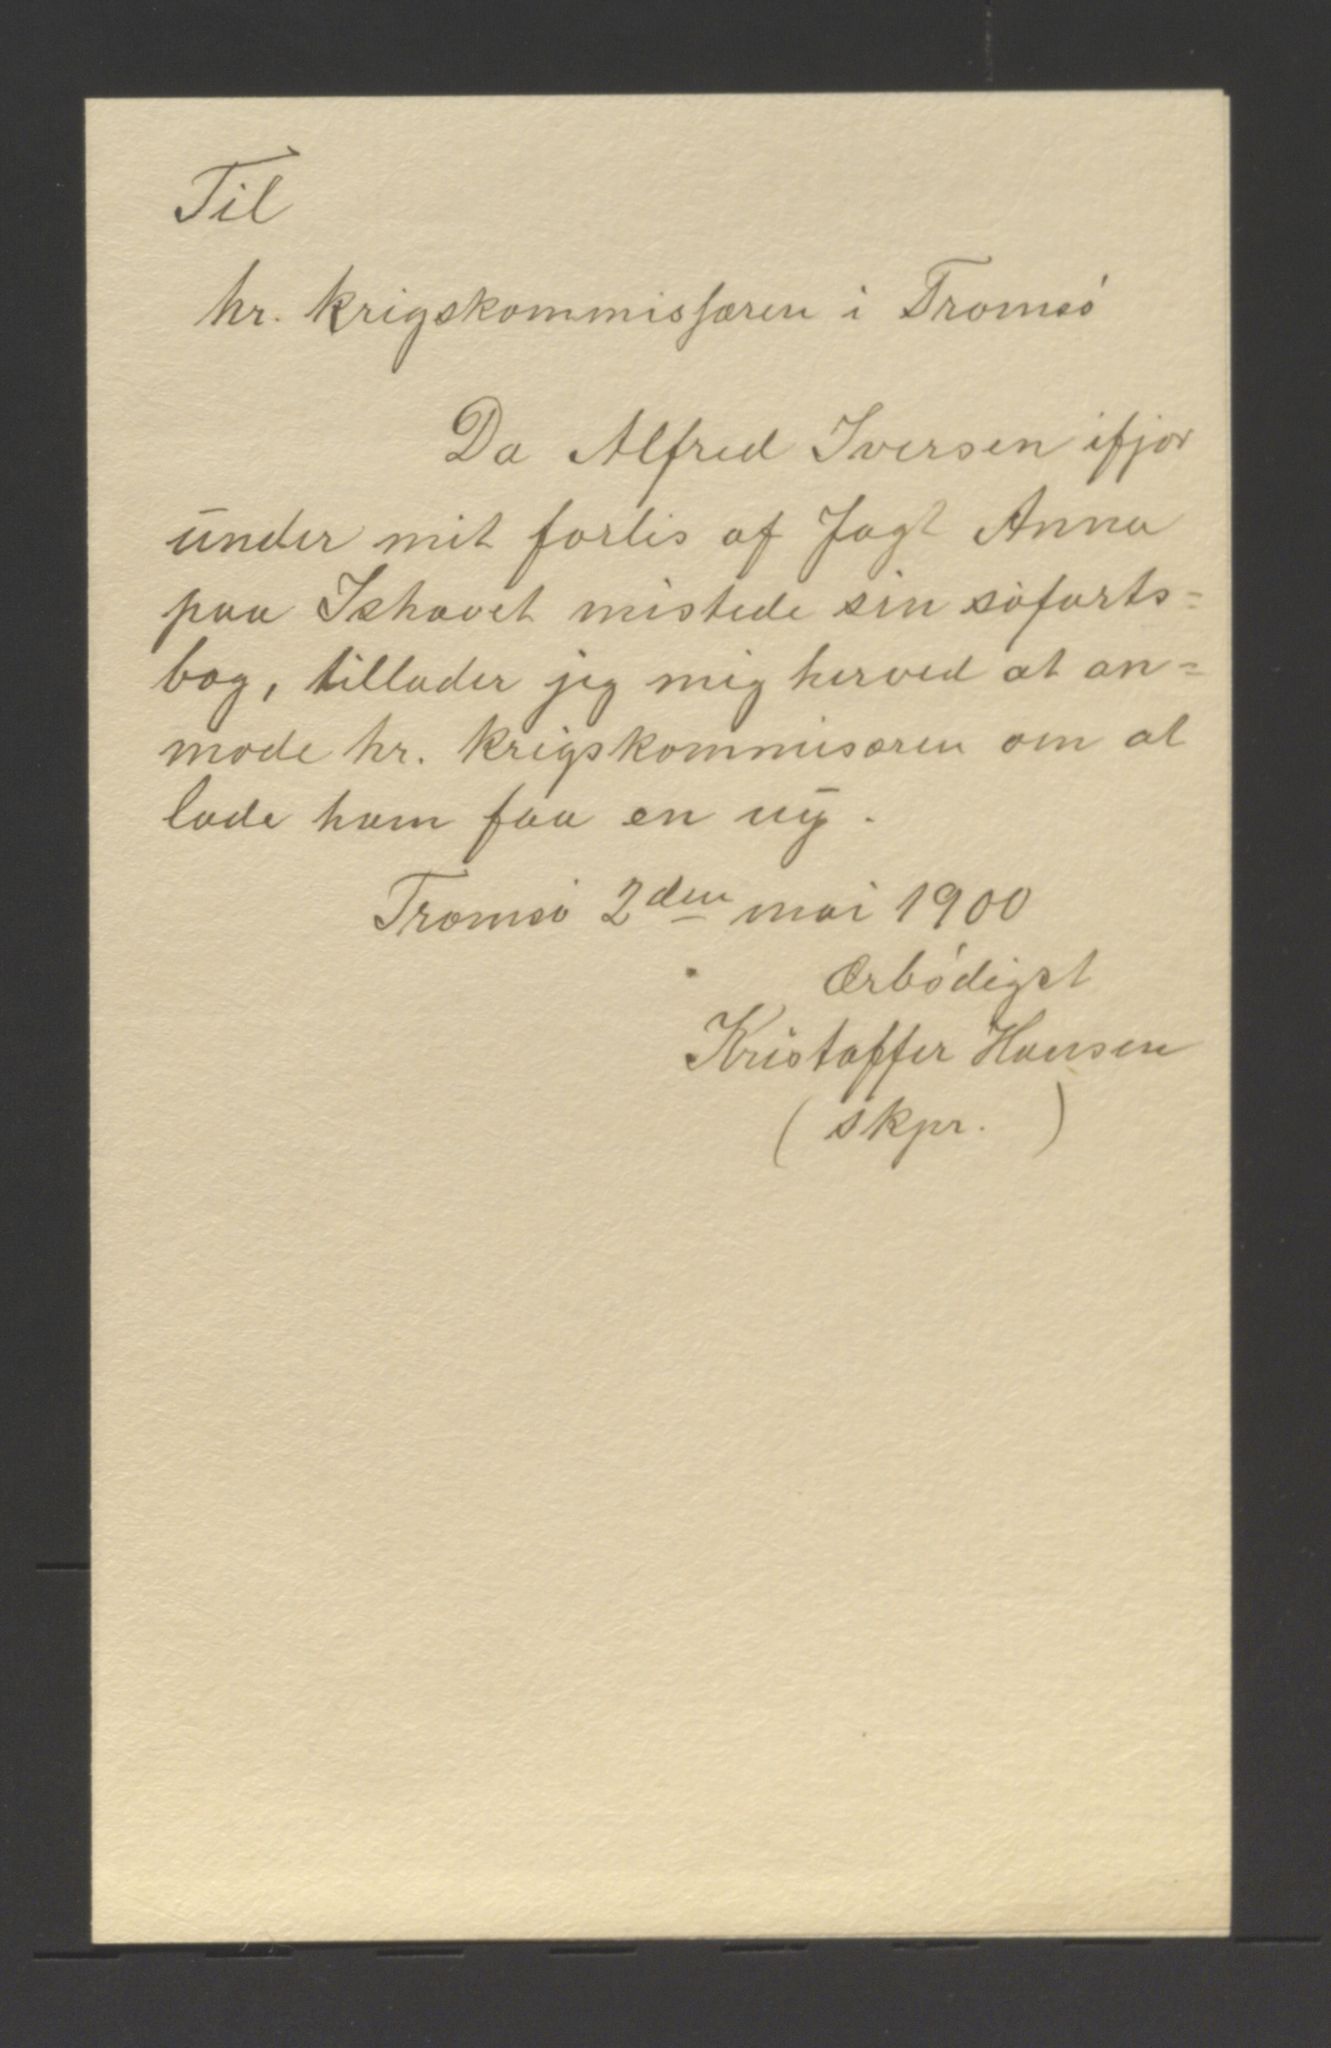 Til
hr. krigskommissæren i Tromsö
Da Alfred Iversen ifjor
under mit forlis af Jagt Anna
paa Ishavet mistede sin söfarts=
bog, tillader jeg mig herved at an=
mode hr. krigskommisæren om at
lade ham faa en ny.
Tromsö 2den mai 1900
Ærbödigst
Kristoffer Hansen
(skpr. )